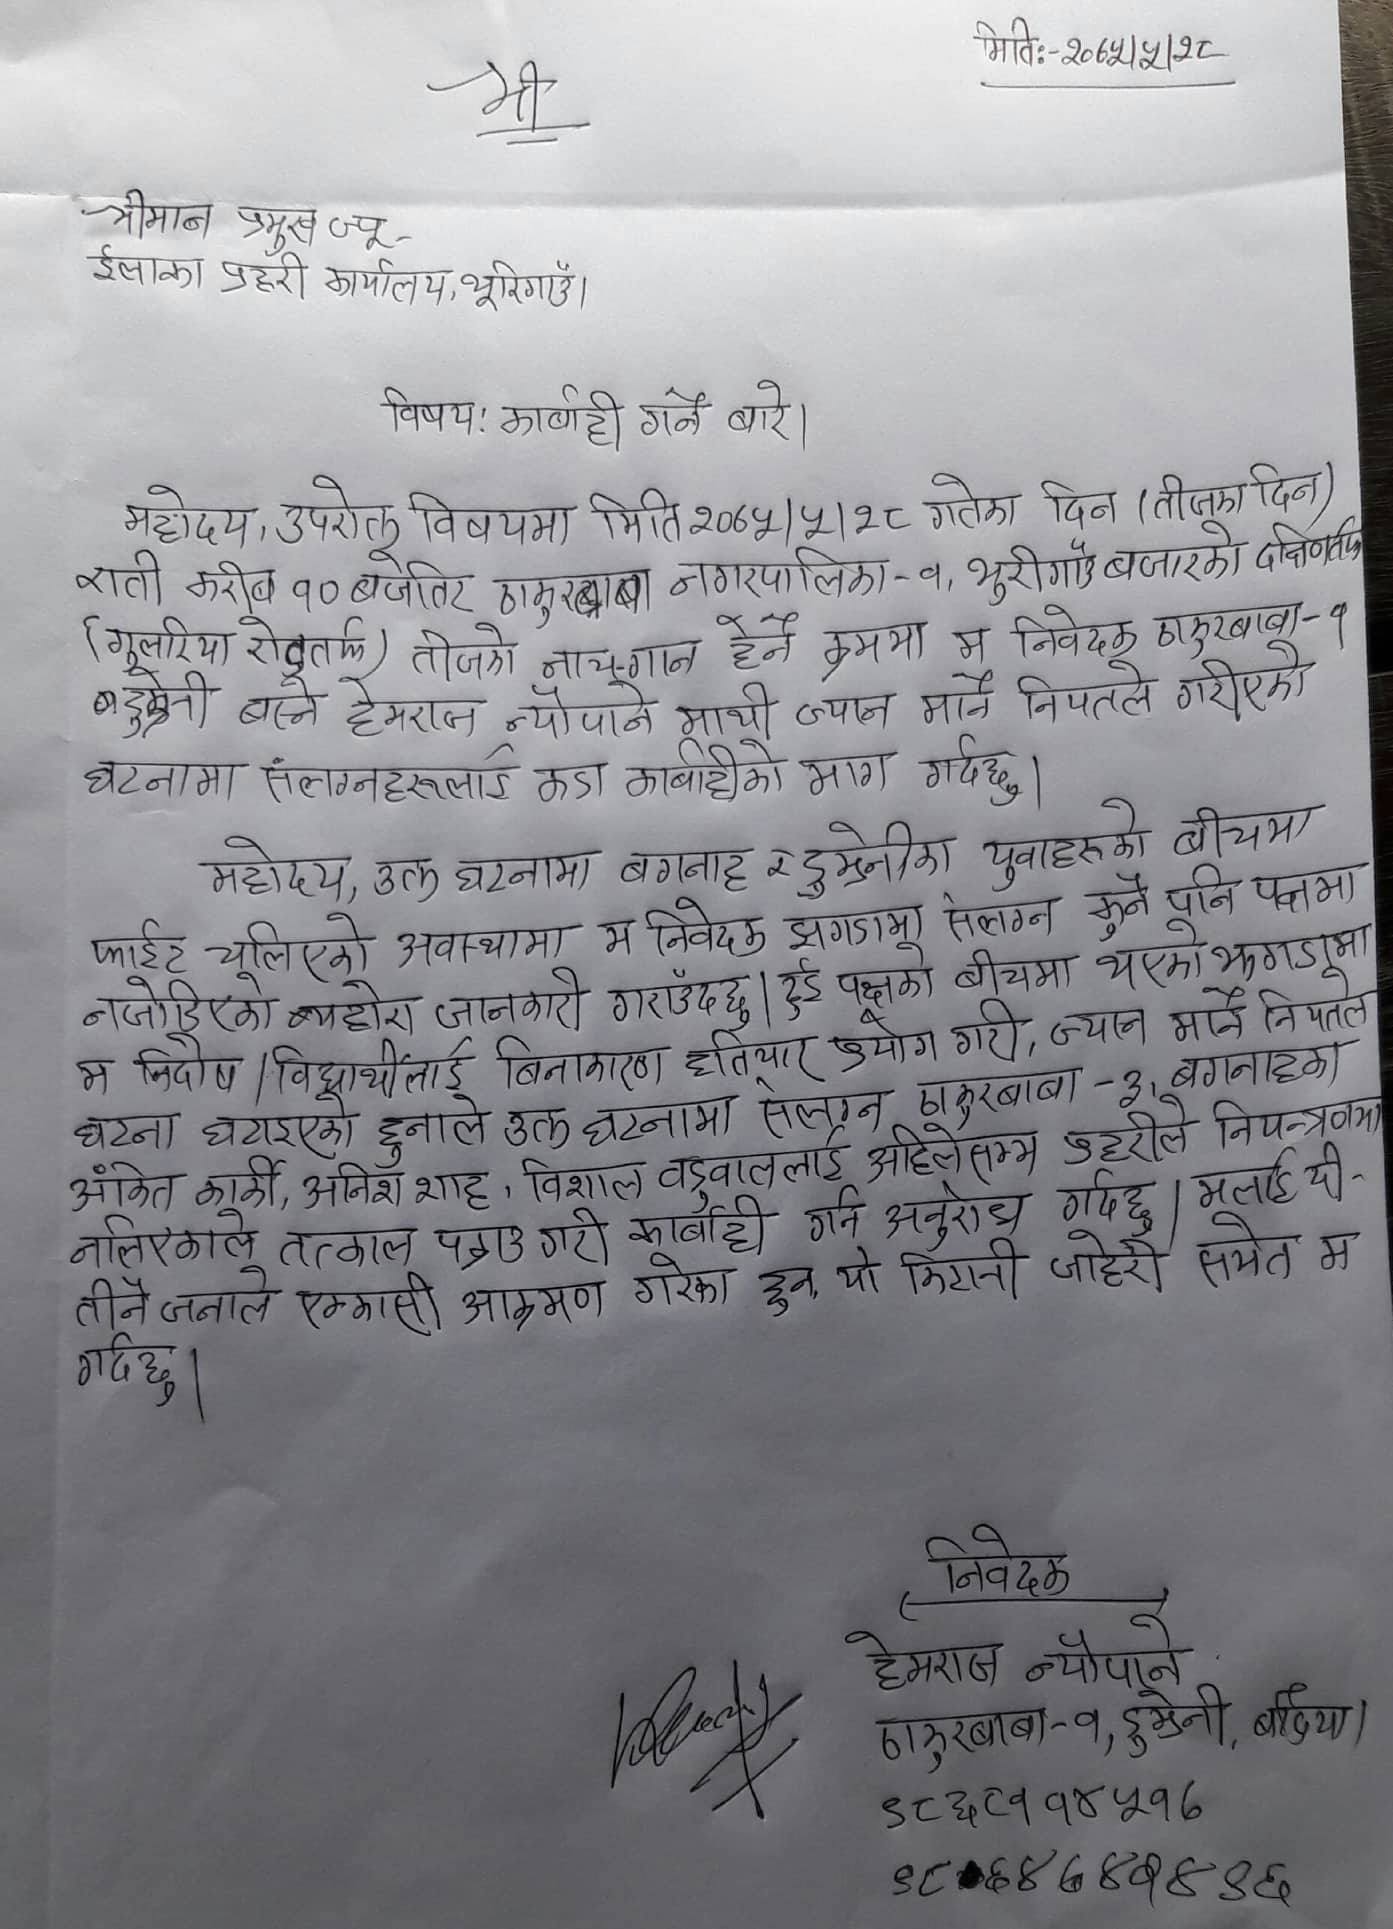 मितिः-२०७५/५/२८
श्री
श्रीमान प्रमुख ज्यू-
ईलाका प्रहरी कार्यालय, भूरिगाउँ।
विषय: कार्बाही गर्ने बारे।
महोदय, उपरोक्त विषयमा मिति २०७५/५/२८ गतेका दिन (तीजका दिन)
राती करीब १० बजेतिर ठाकुरबाबा नगरपालिका-१, भुरीगाउँ बजारको दक्षिणतर्फ
(गूलरिया रोडतर्फ) तीजको नाच-गान हेर्ने क्रममा म निवेदक ठाकुरबाबा-१
डुम्रेनी बस्ने हेमराज न्यौपाने माथी ज्यान मार्ने नियतले गरीएको
घटनामा संलग्नहरूलाई कडा कार्बाहीको माग गर्दछु।
महोदय, उक्त घटनामा बगनाह र डुम्रेनीका युवाहरूको बीचमा
फाईट चूलिएको अवस्थामा म निवेदक झगडामा संलग्न कुनै पनि पक्षमा
नजोडिएको ब्यहोरा जानकारी गराउँदछु। दुई पक्षको बीचमा भएको झगडामा
म निर्दोष विद्यार्थीलाई बिनाकारण हतियार प्रयोग गरी, ज्यान मार्ने नियतले
घटना घटाइएको हुनाले उक्त घटनामा संलग्न ठाकुरबाबा-३, बगनाहका
अंकित कार्की, अनिश शाह, विशाल वडुवाललाई अहिलेसम्म प्रहरीले नियन्त्रणमा
नलिएकाले तत्काल पक्राउ गरी कार्बाही गर्न अनुरोध गर्दछु। मलाई यी-
तीनै जनाले एक्कासी आक्रमण गरेका हुन्, यो किटानी जाहेरी समेत म
गर्दछु।
निवेदक
हेमराज न्यौपाने
ठाकुरबाबा-१, डुम्रेनी, बर्दिया।
९८६८११४५१७